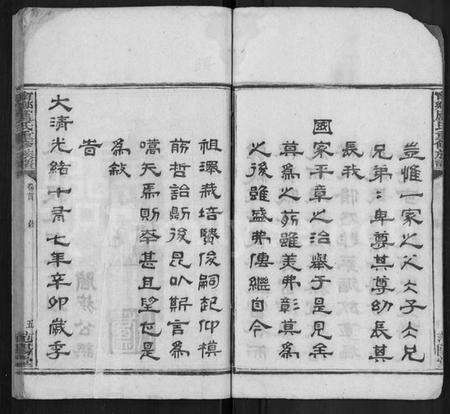 豈惟一家之父〻子〻兄
兄弟〻卑尊其尊幼長其
長哉
國家平章之治舉于是見矣
莫爲之前雖美弗彰莫爲
之後雖盛弗傳繼自今
祖澤栽培賢俊嗣起仰模
前哲詒勖後昆以斯言爲
嚆矢焉則幸甚且望也是
爲敘
旹
大清光緒十有七年辛卯歲季
卷首
五